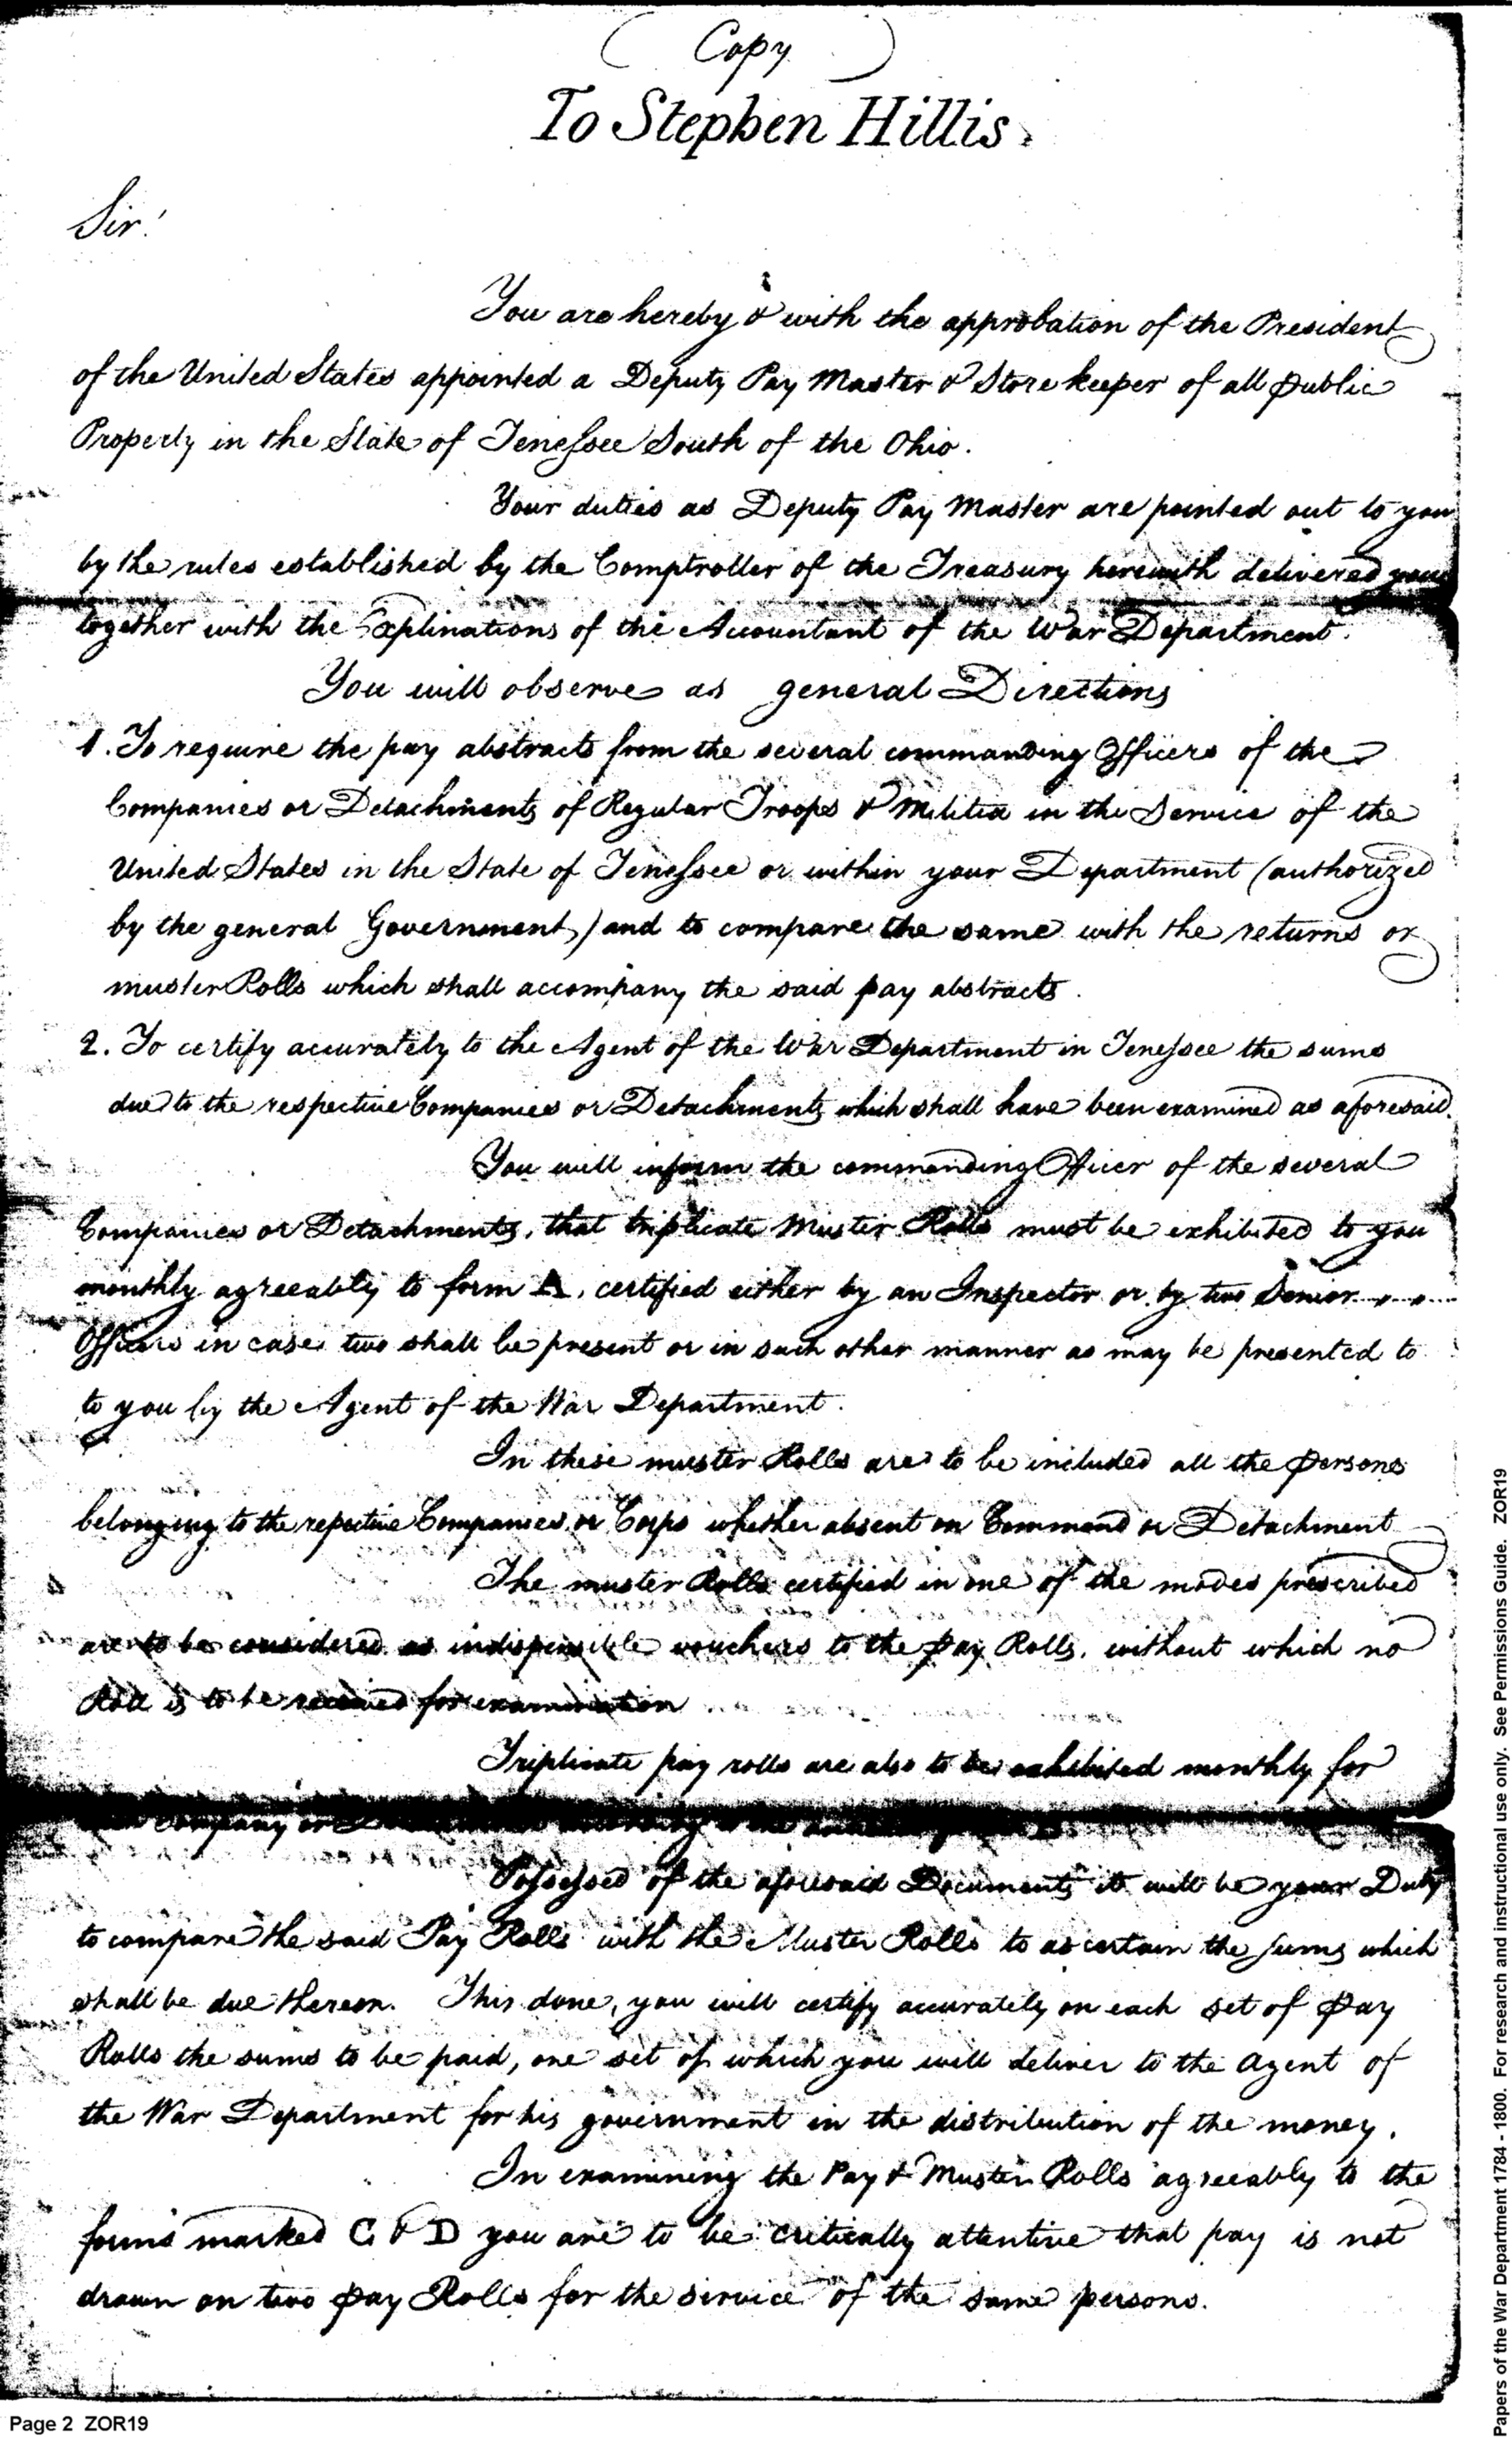 (Copy)
To Stephen Hillis.
Sir!
You are hereby & with the approbation of the President
of the United States appointed a Deputy Pay Master & Store keeper of all public
Property in the State of Tenessee South of the Ohio.
Your duties as Deputy Pay Master are pointed out to you
by the rules established by the Comptroller of the Treasury herewith delivered you
together with the Explinations of the Accountant of the War Department.
You will observe as general Directions
1. To require the pay abstracts from the several commanding Officers of the
Companies or Detachments of Regular Troops & Militia in the Service of the
United States in the State of Tenessee or within your Department (authorized
by the general Government) and to compare the same with the returns or
muster Rolls which shall accompany the said pay abstracts.
2. To certify accurately to the Agent of the War Department in Tenessee the sums
due to the respective Companies or Detachments which shall have been examined as aforesaid.
You will inform the commanding Officer of the several
Companies or Detachments, that triplicate Muster Rolls must be exhibited to you
monthly agreeably to form A. certified either by an Inspector or by two Senior
Officers in case two shall be present or in such other manner as may be presented to
to you by the Agent of the War Department.
In these muster Rolls are to be included all the persons
belonging to the repective Companies or Corps whether absent on Command or Detachment
The muster Rolls certified in one of the modes prescribed
are to be considered as indispensible vouchers to the pay Rolls, without which no
Roll is to be received for examination
Triplicate pay rolls are also to be exhibited monthly for
Company or
Possessed of the aforesaid Documents it will be your Duty
to compare the said Pay Rolls with the Muster Rolls to ascertain the sums which
shall be due thereon. This done, you will certify accurately on each set of Pay
Rolls the sums to be paid, one set of which you will deliver to the Agent of
the War Department for his government in the distribution of the money.
In examining the Pay & Muster Rolls agreeably to the
forms marked C & D you are to be critically attentive that pay is not
drawn on two pay Rolls for the service of the same persons.
Page 2 ZOR19
Papers of the War Department 1784 - 1800. For research and instructional use only. See Permissions Guide. ZOR19